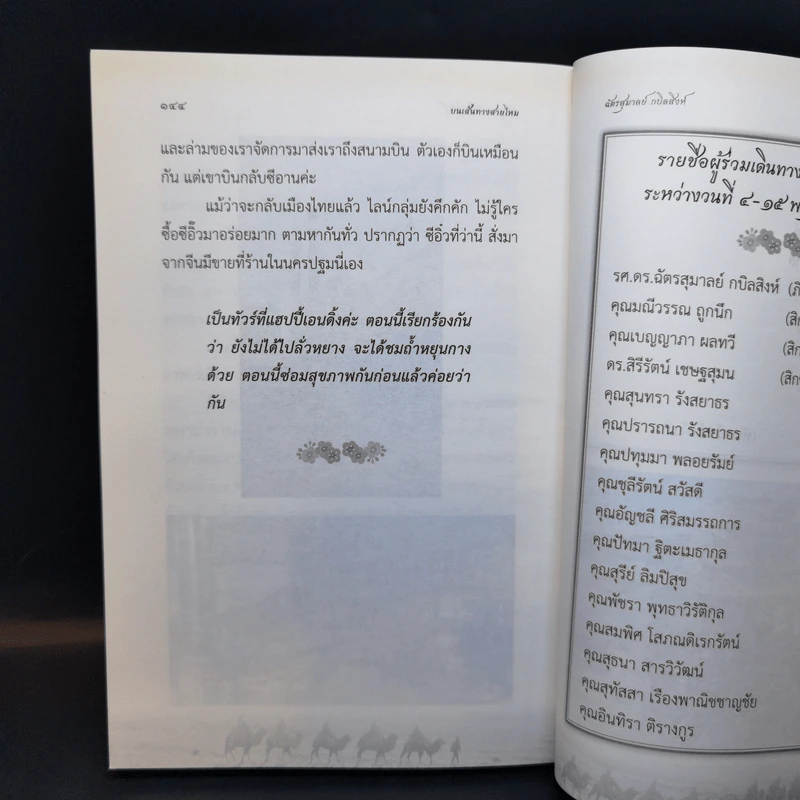 ๑๔๔
บนเส้นทางสายไหม
และล่ามของเราจัดการมาส่งเราถึงสนามบิน ตัวเองก็บินเหมือน
กัน แต่เขาบินกลับซีอานค่ะ
แม้ว่าจะกลับเมืองไทยแล้ว ไลน์กลุ่มยังคึกคัก ไม่รู้ใคร
ซื้อซีอิ๊วมาอร่อยมาก ตามหากันทั่ว ปรากฏว่า ซีอิ่วที่ว่านี้ สั่งมา
จากจีนมีขายที่ร้านในนครปฐมนี่เอง
เป็นทัวร์ที่แฮปปี้เอนดิ้งค่ะ ตอนนี้เรียกร้องกัน
ว่า ยังไม่ได้ไปลั่วหยาง จะได้ชมถ้ำหยุนกาง
ด้วย ตอนนี้ซ่อมสุขภาพกันก่อนแล้วค่อยว่า
กัน
ฉัตรสุมาลย์ กบิลสิงห์
รายชื่อผู้ร่วมเดินทาง
ระหว่างวันที่ ๔-๑๕
รศ.ดร.ฉัตรสุมาลย์ กบิลสิงห์
คุณมณีวรรณ ถูกนึก
คุณเบญญาภา ผลทวี
ดร.สิริรัตน์ เชษฐสุมน
คุณสุนทรา รังสยาธร
คุณปรารถนา รังสยาธร
คุณปทุมมา พลอยรัมย์
คุณชุลีรัตน์ สวัสดี
คุณอัญชลี ศิริสมรรถการ
คุณปัทมา ฐิตะเมธากุล
คุณสุรีย์ ลิมปิสุข
คุณพัชรา พุทธาวิรัติกุล
คุณสมพิศ โสภณดิเรกรัตน์
คุณสุธนา สารวิวัฒน์
คุณสุทัสสา เรืองพาณิชชาญชัย
คุณอินทิรา ติรางกูร